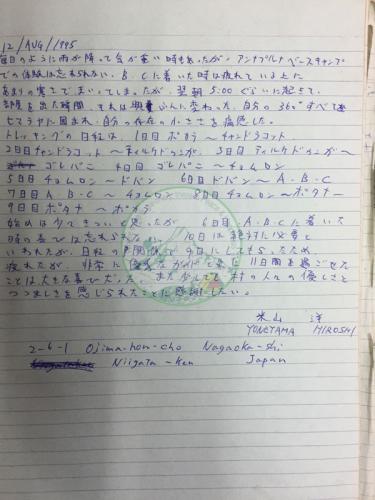 12/AUG/1995
毎日のように雨が降って気が重い時もあったが、アンナプルナベースキャンプ
での体験は忘れられない。B.Cに着いた時は疲れている上に
あまりの寒さで、まいってしまったが、翌朝5:00ぐらいに起きて、
部屋を出た瞬間、それは興奮に変わった。自分の360°すべて
ヒマラヤに囲まれ、自分の存在の小ささを痛感した。
トレッキングの日程は、1日目 ポカラ〜チャンドラコット
2日目 チャンドラコット〜ティルケドゥンガ、3日目 ティルケドゥンガ〜
ゴレパニ 4日目 ゴレパニ〜チョムロン
5日目 チョムロン〜ドバン 6日目 ドバン〜A.B.C
7日目 A.B.C〜チョムロン 8日目 チョムロン〜ポタナ
9日目 ポタナ〜ポカラ
始めは少しきついと思ったが 6日目、A.B.Cに着いた
時の喜びは忘れられない。10日は絶対に必要と
いわれたが、日程の関係で9日にしてもらったため
疲れたが、非常に優秀なガイドと共に 日間を過ごせた
ことは大きな喜びだった。また少しでも村の人々の優しさと
つつましさを感じられたことに感謝したい。
米山 洋
YONEYAMA HIROSHI
2-6-1 Ojima-hon-cho Nagaoka-shi
Niigata-Ken Japan